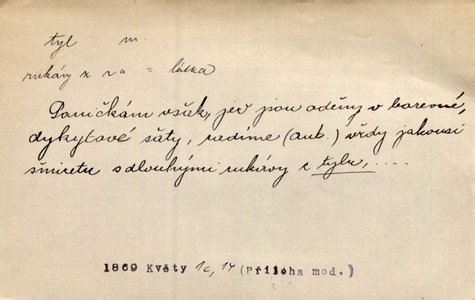 tyl m.
rukávy z t-u = látka
Paničkám však, jež jsou oděny v barevné,
dykytové šaty, radíme (aut.) vždy jakousi
šnizetu s dlouhými rukávy z tylu, ....
1869 Květy 1c, 14 (Příloha mod.)